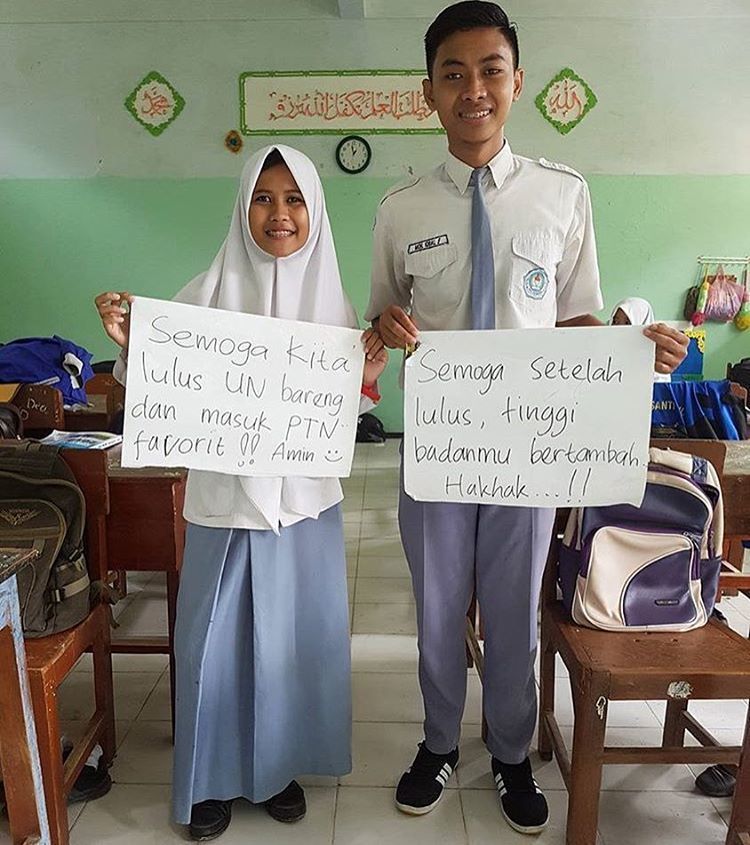 محمد
الله
Semoga kita
lulus UN bareng
dan masuk PTN
favorit !! Amin
Semoga setelah
lulus, tinggi
badanmu bertambah.
Hakhak...!!
SANTI